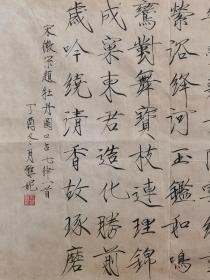 縈浴絳河玉鑑和鳴
鸞對舞寶枝連理錦
成窠東君造化勝前
歲吟繞清香故琢磨
宋徽宗趙牡丹圖口占七律一首
丁酉冬月